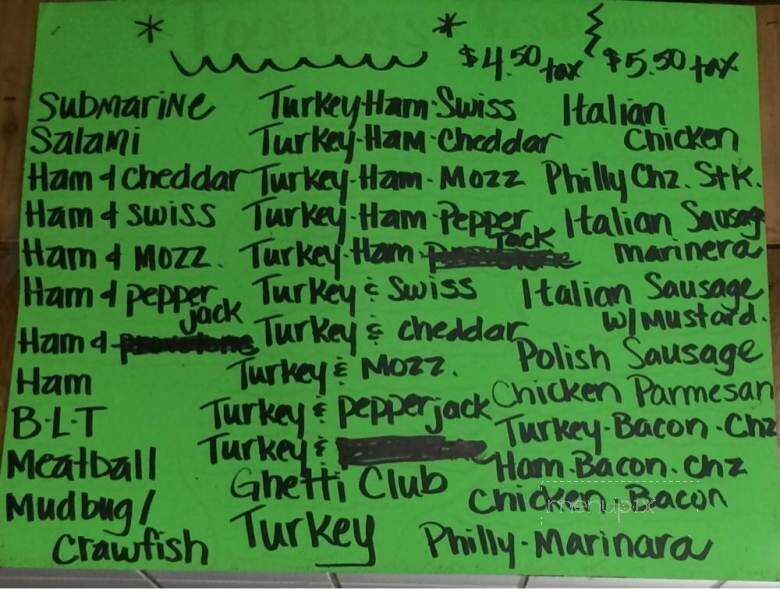 $4.50 tax $5.50 tax
Submarine
Salami
Ham & cheddar
Ham & swiss
Ham & Mozz.
Ham & pepper
jack
Ham &
Ham
B·L·T
Meatball
Mudbug/
Crawfish
Turkey·Ham·Swiss
Turkey·Ham·Cheddar
Turkey·Ham·Mozz
Turkey·Ham·Pepper
Jack
Turkey·Ham·
Turkey & Swiss
Turkey & cheddar
Turkey & Mozz.
Turkey & pepper jack
Turkey &
Ghetti Club
Turkey
Italian
Chicken
Philly Chz. Stk.
Italian Sausage
marinera
Italian Sausage
w/Mustard.
Polish Sausage
Chicken Parmesan
Turkey·Bacon·Chz
Ham·Bacon·Chz
Chicken·Bacon
Philly·Marinara
menupix